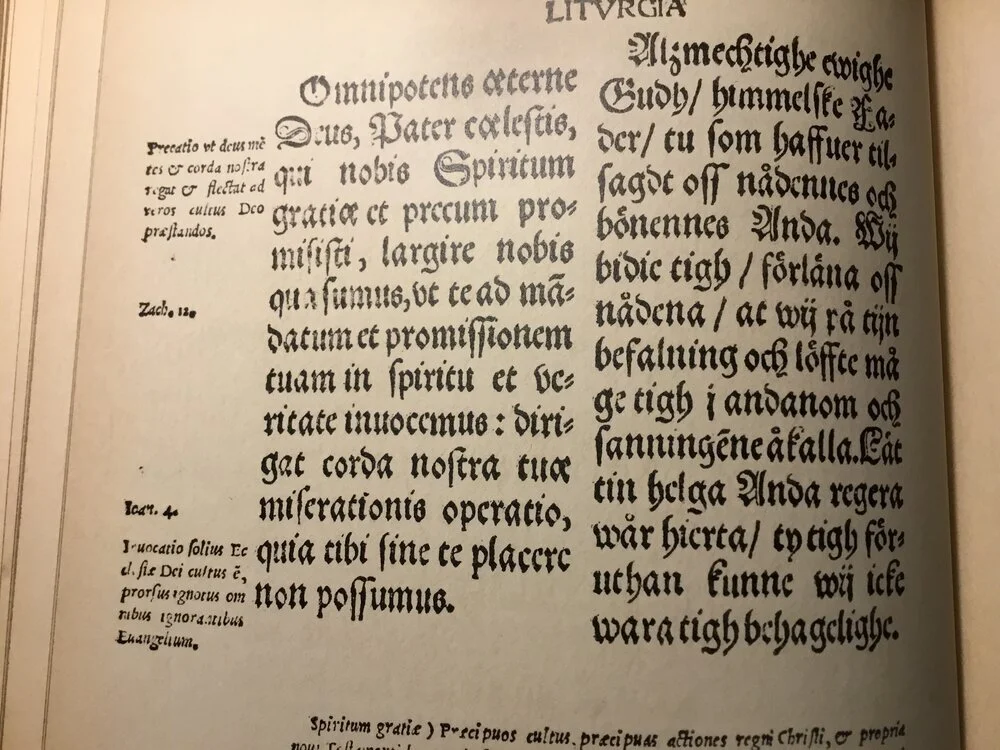 LITVRGIA
Omnipotens æterne
Deus, Pater cœlestis,
qui nobis Spiritum
gratiæ et precum pro⸗
misisti, largire nobis
quæsumus, vt te ad mā⸗
datum et promissionem
tuam in spiritu et ve⸗
ritate inuocemus : diri⸗
gat corda nostra tuæ
miserationis operatio,
quia tibi sine te placere
non possumus.
Precatio vt deus mē
tes & corda nostra
regat & flectat ad
veros cultus Deo
præstandos.
Zach. 12.
Ioan. 4.
Inuocatio solius Ec
clesiæ Dei cultus ē,
prorsus ignotus om
nibus ignorantibus
Euangelium.
Alzmechtighe ewighe
Gudh/ himmelske Fa⸗
der/ tu som haffuer til⸗
sagdt oss nådennes och
bönennes Anda. Wij
bidie tigh / förläna oss
nådena / at wij på tijn
befalning och löffte må
ge tigh j andanom och
sanningēne åkalla. Låt
tin helga Anda regera
wår hierta/ ty tigh för⸗
uthan kunne wij icke
wara tigh behagelighe.
Spiritum gratiæ ) Præcipuos cultus, præcipuas actiones regni Christi, & propria